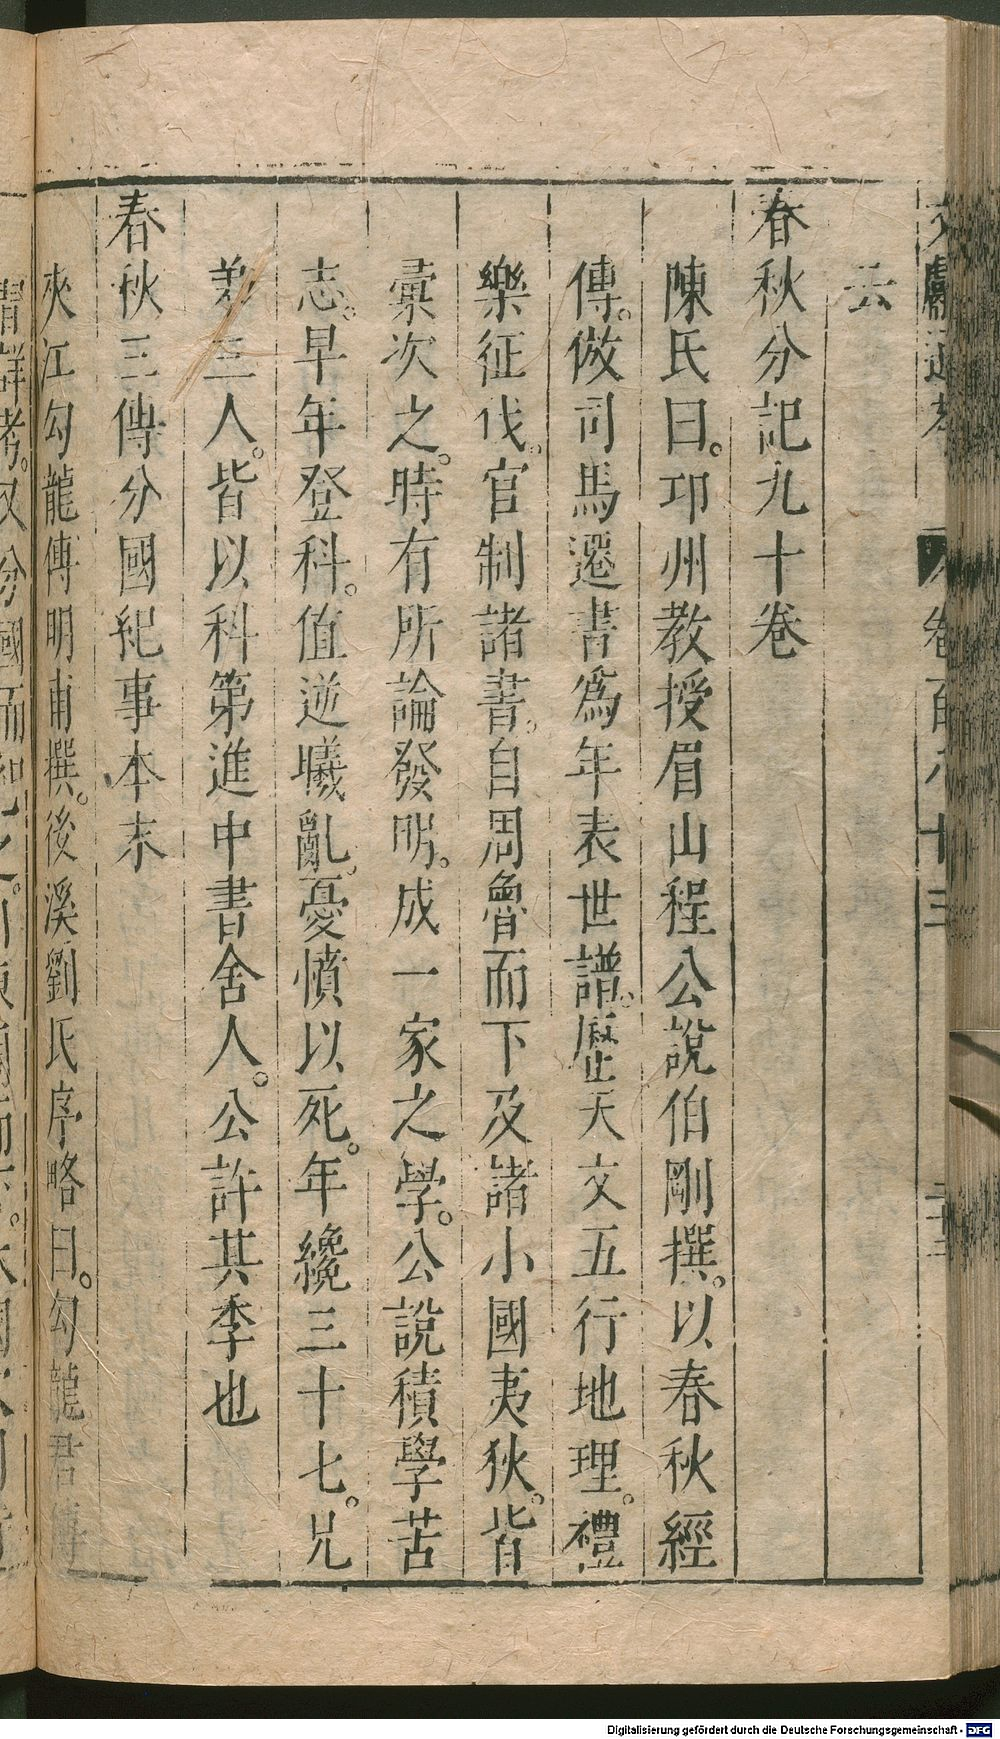 云
春秋分記九十卷
陳氏曰。邛州教授眉山程公說伯剛撰。以春秋經
傳。倣司馬遷書爲年表世譜。歷天文五行地理。禮
樂征伐。官制諸書。自周魯而下及諸小國夷狄。皆
彙次之。時有所論發明。成一家之學。公說積學苦
志。早年登科。值逆曦亂。憂憤以死。年纔三十七。兄
弟三人。皆以科第進中書舍人。公許其季也
春秋三傳分國紀事本末
夾江勾龍傳明甫撰。後溪劉氏序略曰。勾龍君傳
Digitalisierung gefördert durch die Deutsche Forschungsgemeinschaft - DFG